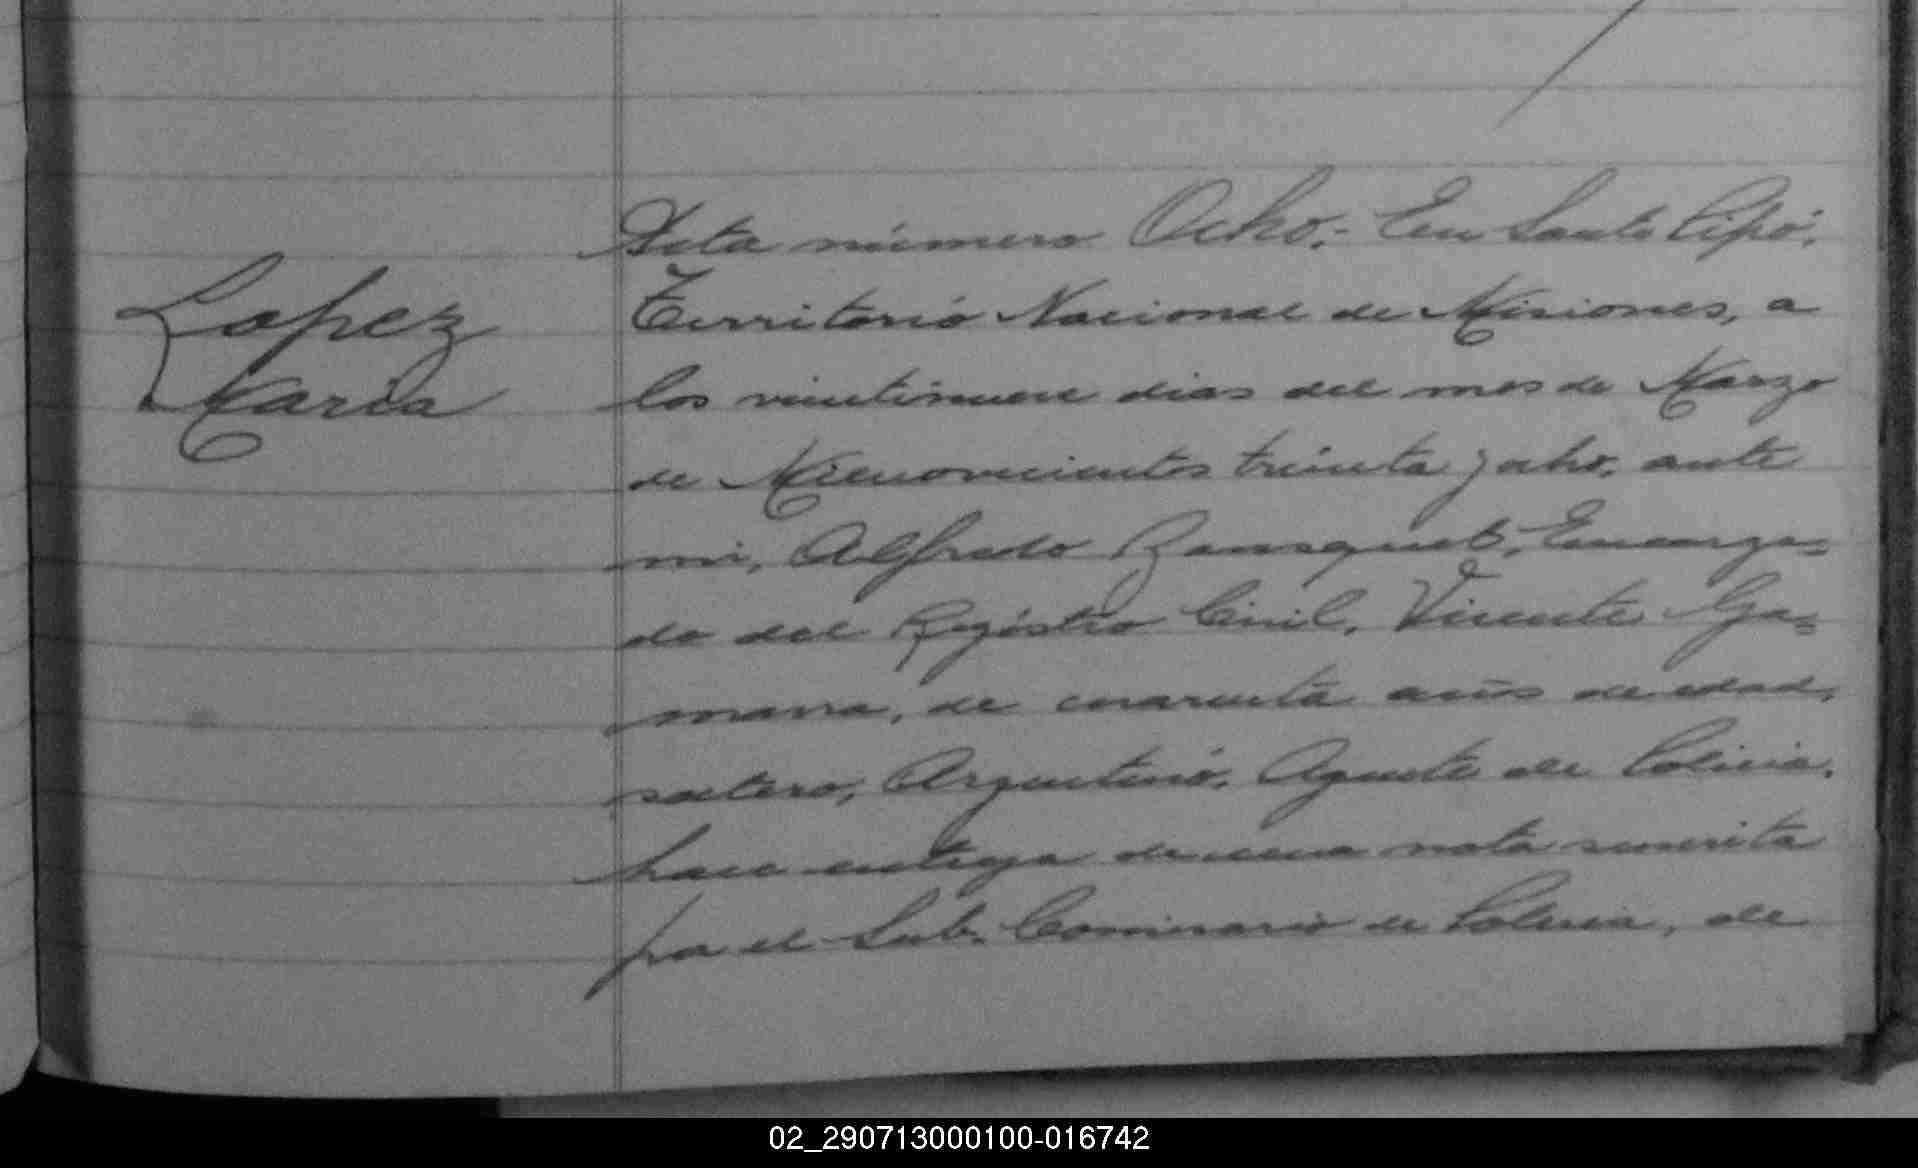 Lopez
Maria
Acta número Ocho.- En Santo Pipó,
Territorio Nacional de Misiones, a
los veintinueve dias del mes de Marzo
de Mil novecientos treinta y ocho, ante
mi, Alfredo Encarga=
do del Registro Civil, Vicente Ga=
marra, de cuarenta años de edad,
soltero, Argentino, Agente de Policia,
hace entrega de una nota suscrita
por el Sub. Comisario de Policia, de
02_290713000100-016742